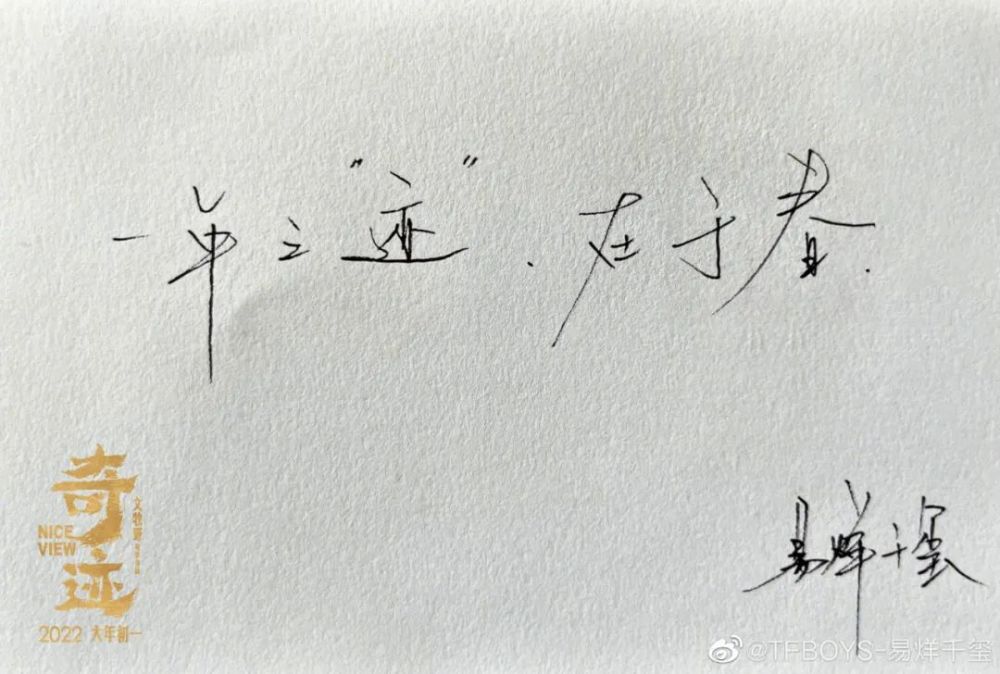 一年之“迹”.在于春.
奇迹
NICE
VIEW
文牧野
2022 大年初一
易烊千玺
@TFBOYS-易烊千玺